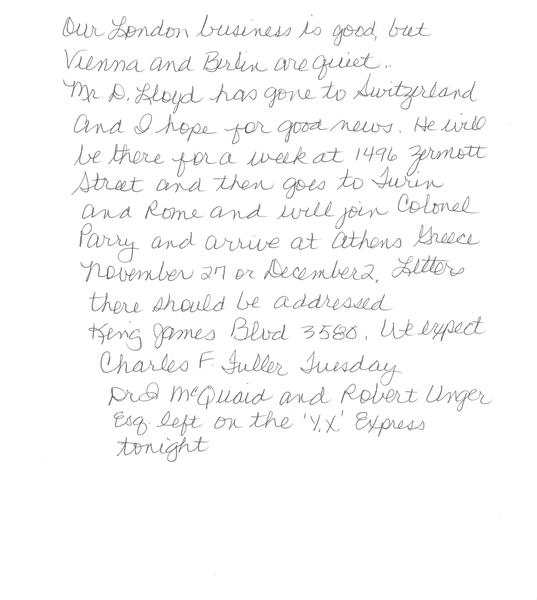 Our London business is good, but
Vienna and Berlin are quiet..
Mr. D. Lloyd has gone to Switzerland
and I hope for good news. He will
be there for a week at 1496 Zermott
Street and then goes to Turin
and Rome and will join Colonel
Parry and arrive at Athens Greece
November 27 or December 2. Letters
there should be addressed
King James Blvd 3580. We expect
Charles F. Fuller Tuesday
Dr J McQuaid and Robert Unger
Esq. left on the 'Y.X.' Express
tonight